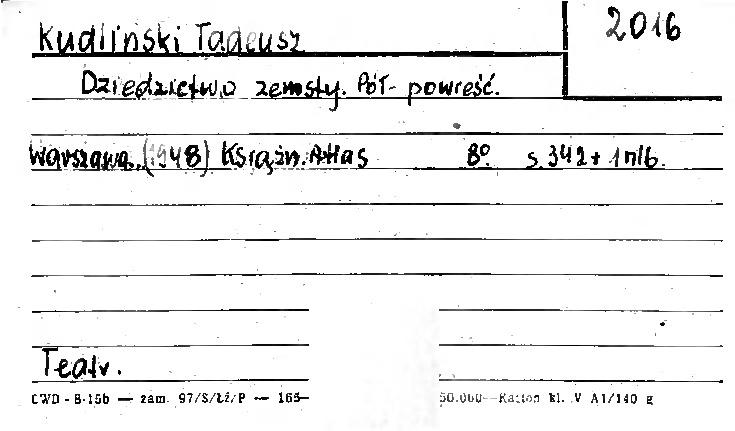 Kudliński Tadeusz
2016
Dziedzictwo zemsty. Pół- powieść.
Warszawa. (1948) Książn. Atlas 8º. s. 342 + 1 nlb.
Teatr.
CWD - B-15b — zam. 97/S/Łź/P — 165— 50.000—Karton kl. V A1/140 g